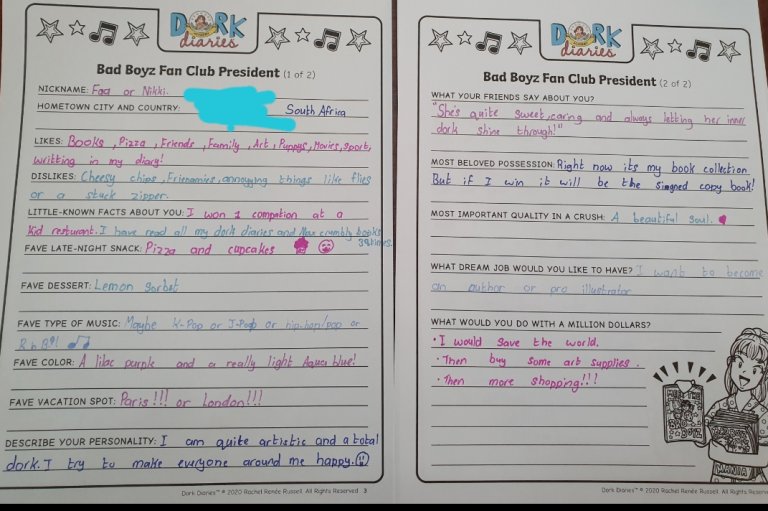 DORK
diaries
Bad Boyz Fan Club President (1 of 2)
NICKNAME: Faa or Nikki.
HOMETOWN CITY AND COUNTRY: South Africa
LIKES: Books, Pizza, Friends, Family, Art, Puppys, Movies, Sport,
writting in my diary!
DISLIKES: Cheesy chips, Frienamies, annoyyng things like flies
or a stuck zipper.
LITTLE-KNOWN FACTS ABOUT YOU: I won 1 compation at a
Kid resturant. I have read all my dork diaries and Max crumbly books
39 times.
FAVE LATE-NIGHT SNACK: Pizza and cupcakes
FAVE DESSERT: Lemon Sorbet
FAVE TYPE OF MUSIC: Maybe K-Pop or J-Pop or hip-hop/pop or
R n B!!
FAVE COLOR: A lilac purple and a really light Aqua blue!
FAVE VACATION SPOT: Paris!!! or London!!!
DESCRIBE YOUR PERSONALITY: I am quite artistic and a total
dork. I try to make everyone around me happy.
Dork Diaries™ © 2020 Rachel Renée Russell. All Rights Reserved 3
DORK
diaries
Bad Boyz Fan Club President (2 of 2)
WHAT YOUR FRIENDS SAY ABOUT YOU?
"She's quite sweet, caring and always letting her inner
dork shine through!"
MOST BELOVED POSSESSION: Right now its my book collection
But if I win it will be the signed copy book!
MOST IMPORTANT QUALITY IN A CRUSH: A beautiful soul.
WHAT DREAM JOB WOULD YOU LIKE TO HAVE? I want to become
an author or pro illustrator
WHAT WOULD YOU DO WITH A MILLION DOLLARS?
• I would save the world.
• Then buy some art supplies.
• Then more shopping!!!
MANIA
Dork Diaries™ © 2020 Rachel Renée Russell. All Rights Reserved